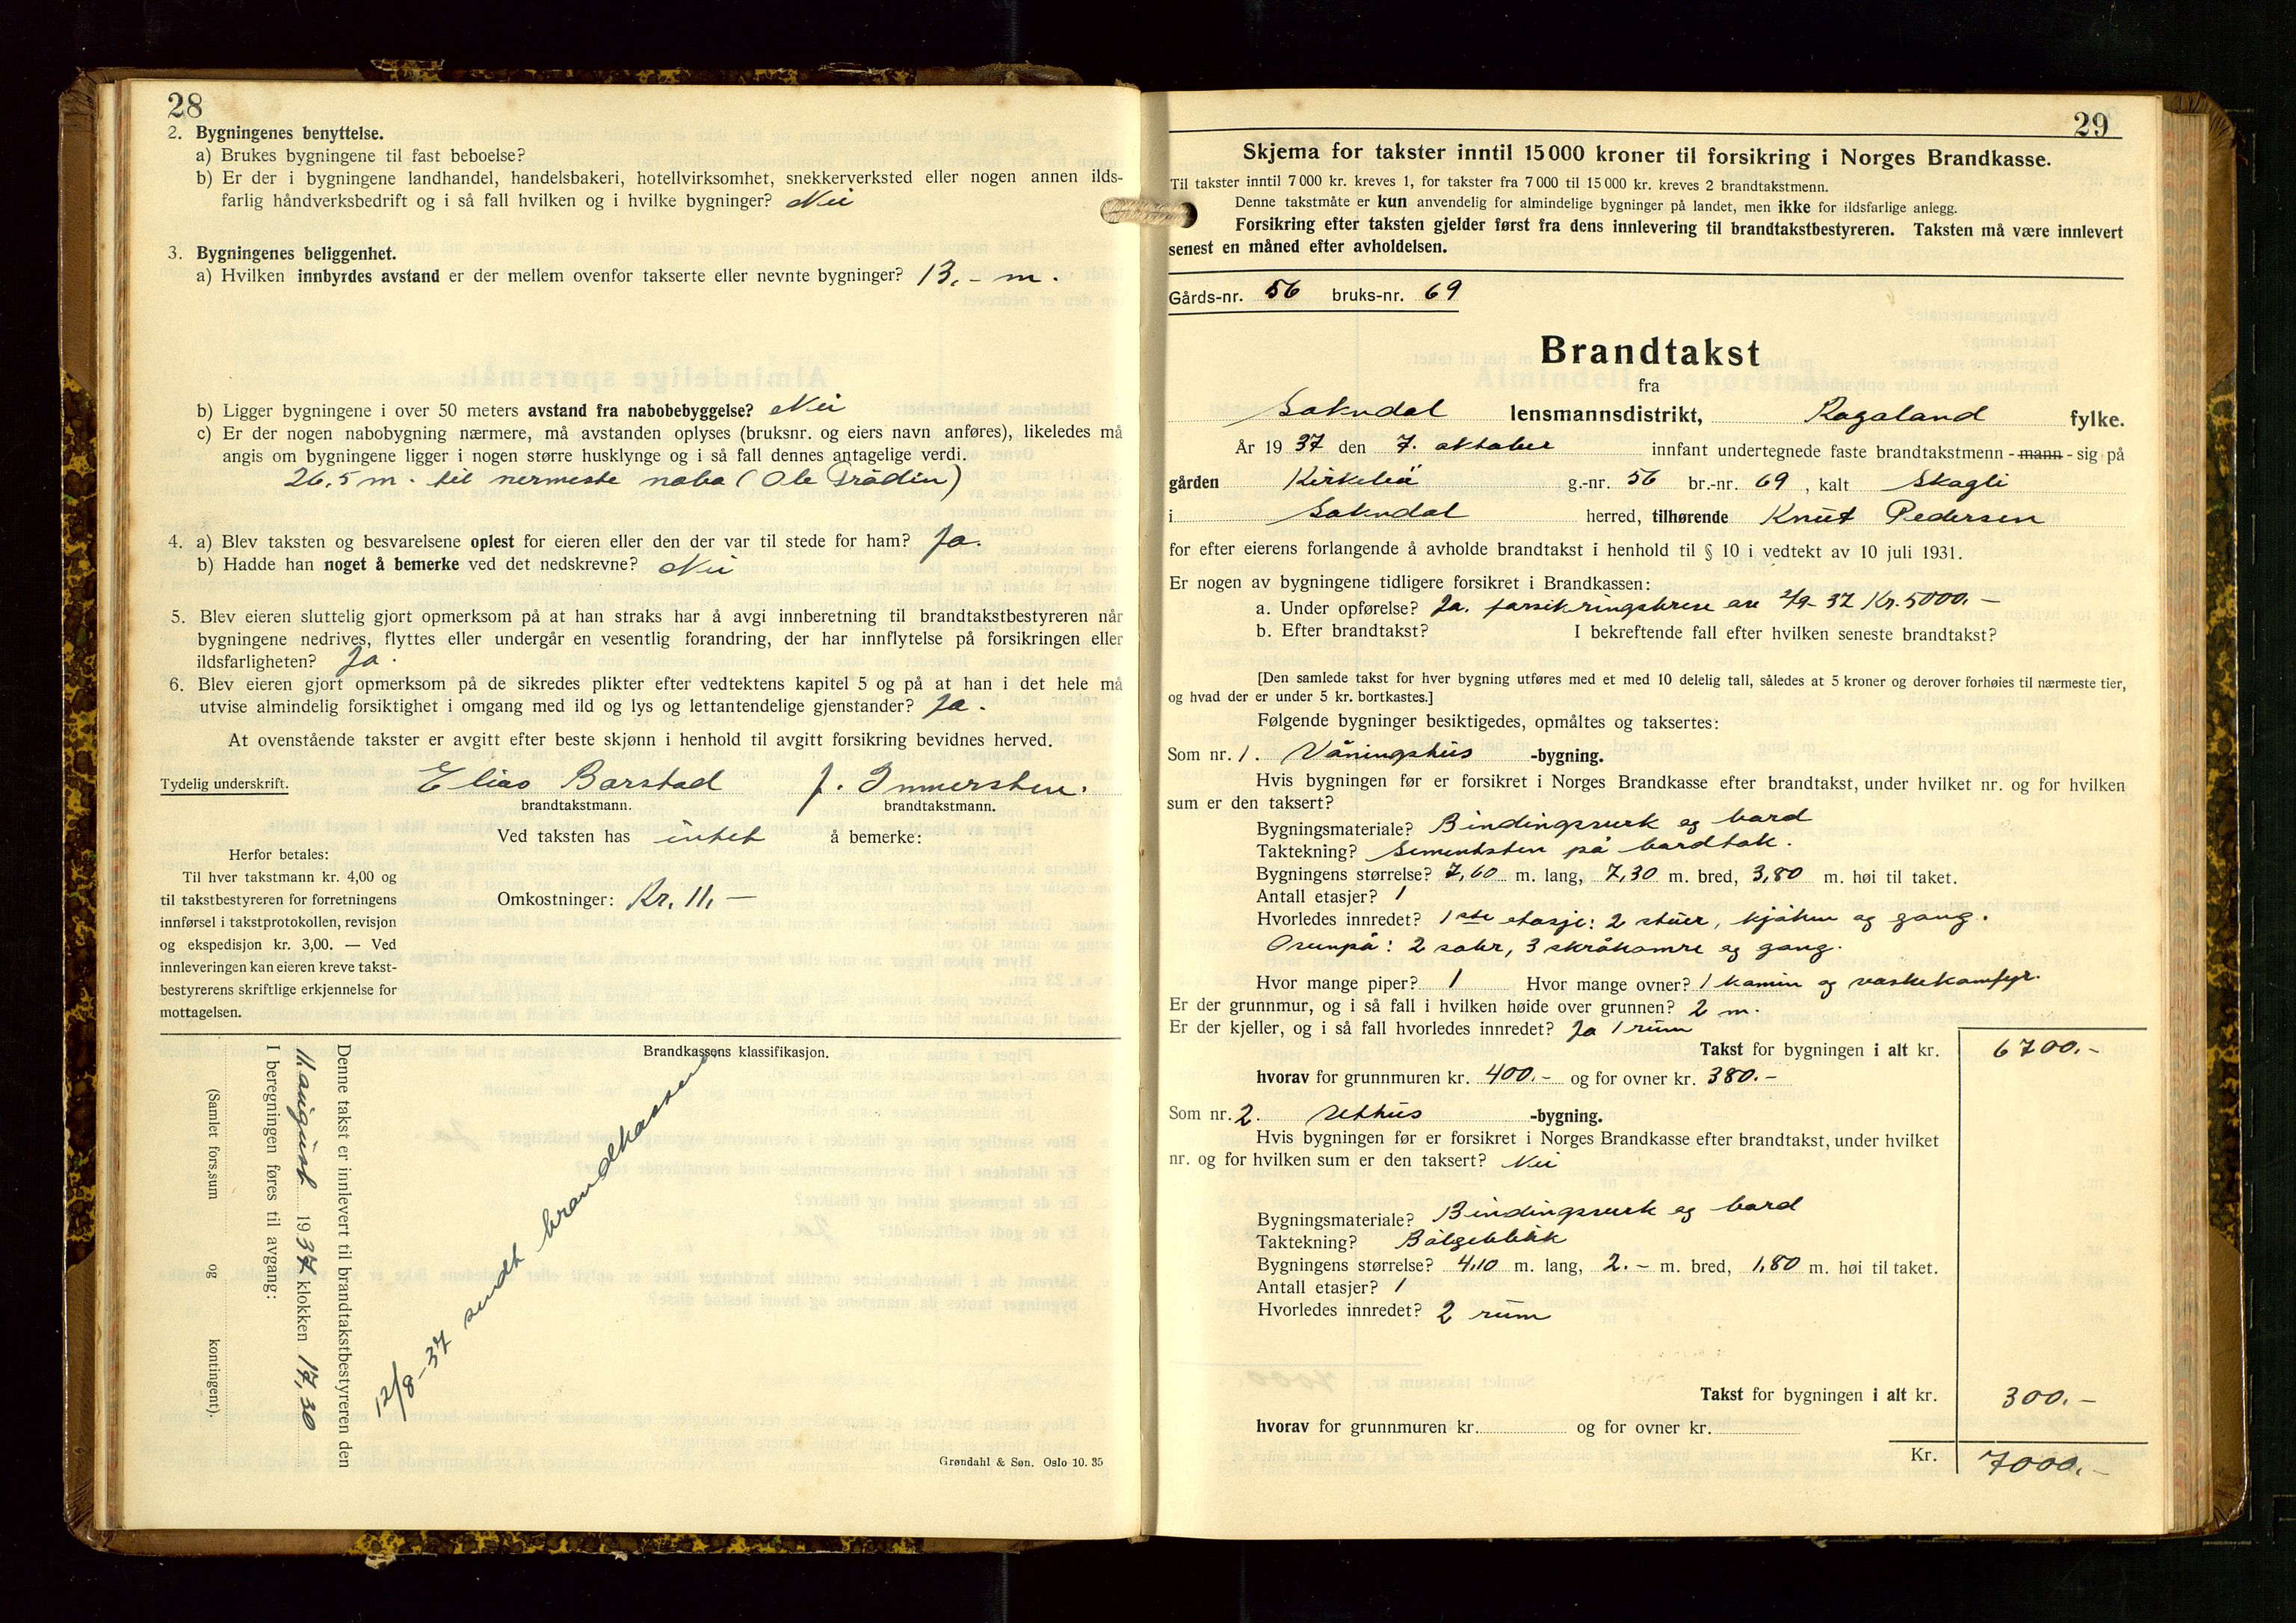 28
2. Bygningenes benyttelse.
a) Brukes bygningene til fast beboelse?
b) Er der i bygningene landhandel, handelsbakeri, hotellvirksomhet, snekkerverksted eller nogen annen ilds-
farlig håndverksbedrift og i så fall hvilken og i hvilke bygninger? Nei
3. Bygningenes beliggenhet.
a) Hvilken innbyrdes avstand er der mellem ovenfor takserte eller nevnte bygninger? 13,- m.
b) Ligger bygningene i over 50 meters avstand fra nabobebyggelse? Nei
c) Er der nogen nabobygning nærmere, må avstanden oplyses (bruksnr. og eiers navn anføres), likeledes må
angis om bygningene ligger i nogen større husklynge og i så fall dennes antagelige verdi.
26,5 m. til nermeste nabo (Ole Trådin)
4. a) Blev taksten og besvarelsene oplest for eieren eller den der var til stede for ham? Ja.
b) Hadde han noget å bemerke ved det nedskrevne? Nei
5. Blev eieren sluttelig gjort opmerksom på at han straks har å avgi innberetning til brandtakstbestyreren når
bygningene nedrives, flyttes eller undergår en vesentlig forandring, der har innflytelse på forsikringen eller
ildsfarligheten? Ja.
6. Blev eieren gjort opmerksom på de sikredes plikter efter vedtektens kapitel 5 og på at han i det hele må
utvise almindelig forsiktighet i omgang med ild og lys og lettantendelige gjenstander? Ja.
At ovenstående takster er avgitt efter beste skjønn i henhold til avgitt forsikring bevidnes herved.
Tydelig underskrift. Elias Barstad J. Immersten.
brandtakstmann. brandtakstmann.
Ved taksten has intet å bemerke:
Herfor betales:
Til hver takstmann kr. 4,00 og
til takstbestyreren for forretningens
innførsel i takstprotokollen, revisjon
og ekspedisjon kr. 3,00. — Ved
innleveringen kan eieren kreve takst-
bestyrerens skriftlige erkjennelse for
mottagelsen.
Omkostninger: Kr. 11,-
Brandkassens klassifikasjon.
Denne takst er innlevert til brandtakstbestyreren den
11. august 1937 klokken 17,30
I beregningen føres til avgang:
(Samlet fors.sum og kontingent).
12/8-37 sendt brandkassen
Grøndahl & Søn. Oslo 10. 35
29
Skjema for takster inntil 15000 kroner til forsikring i Norges Brandkasse.
Til takster inntil 7 000 kr. kreves 1, for takster fra 7 000 til 15 000 kr. kreves 2 brandtakstmenn.
Denne takstmåte er kun anvendelig for almindelige bygninger på landet, men ikke for ildsfarlige anlegg.
Forsikring efter taksten gjelder først fra dens innlevering til brandtakstbestyreren. Taksten må være innlevert
senest en måned efter avholdelsen.
Gårds-nr. 56 bruks-nr. 69
Brandtakst
fra
Sokndal lensmannsdistrikt, Rogaland fylke.
År 1937 den 7. oktober innfant undertegnede faste brandtakstmenn - mann - sig på
gården Kirkebö g.-nr. 56 br.-nr. 69, kalt Skogli
i Sokndal herred, tilhørende Knut Pedersen
for efter eierens forlangende å avholde brandtakst i henhold til § 10 i vedtekt av 10 juli 1931.
Er nogen av bygningene tidligere forsikret i Brandkassen:
a. Under opførelse? Ja. forsikringsbrev av 2/9-37 Kr. 5000.-
b. Efter brandtakst? I bekreftende fall efter hvilken seneste brandtakst?
[Den samlede takst for hver bygning utføres med et med 10 delelig tall, således at 5 kroner og derover forhøies til nærmeste tier,
og hvad der er under 5 kr. bortkastes.]
Følgende bygninger besiktigedes, opmåltes og taksertes:
Som nr. 1. Våningshus -bygning.
Hvis bygningen før er forsikret i Norges Brandkasse efter brandtakst, under hvilket nr. og for hvilken
sum er den taksert?
Bygningsmateriale? Bindingsverk og bord
Taktekning? Sementsten på bordtak.
Bygningens størrelse? 7,60 m. lang, 7,30 m. bred, 3,80 m. høi til taket.
Antall etasjer? 1
Hvorledes innredet? 1ste etasje: 2 stuer, kjöken og gang.
Ovenpå: 2 saler, 3 skråkamre og gang.
Hvor mange piper? 1 Hvor mange ovner? 1 kamin og vaskekomfyr.
Er der grunnmur, og i så fall i hvilken høide over grunnen? 2 m.
Er der kjeller, og i så fall hvorledes innredet? Ja 1 rum
Takst for bygningen i alt kr. 6700.-
hvorav for grunnmuren kr. 400.- og for ovner kr. 380.-
Som nr. 2. Uthus -bygning.
Hvis bygningen før er forsikret i Norges Brandkasse efter brandtakst, under hvilket
nr. og for hvilken sum er den taksert? Nei
Bygningsmateriale? Bindingsverk og bord
Taktekning? Bölgeblikk
Bygningens størrelse? 4,10 m. lang, 2.- m. bred, 1,80 m. høi til taket.
Antall etasjer? 1
Hvorledes innredet? 2 rum
Takst for bygningen i alt kr. 300.-
hvorav for grunnmuren kr. og for ovner kr.
Kr. 7000.-